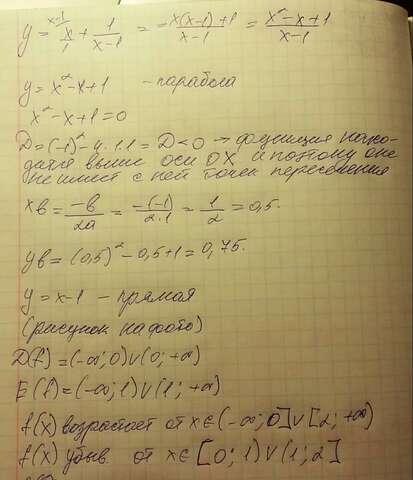 y = x/1 + 1/(x-1) = = x(x-1)+1/(x-1) = x²-x+1/(x-1)
y = x²-x+1 - парабола
x²-x+1=0
D=(-1)²-4·1·1= D<0 → функция нахо-
дится выше оси OX и поэтому она
не имеет с ней точек пересечения
xв = -b/2a = -(-1)/2·1 = 1/2 = 0,5.
yв = (0,5)²-0,5+1=0,75.
y = x-1 - прямая
(рисунок на фото)
D(f)=(-∞;0)∪(0;+∞)
E(f)=(-∞;1)∪(1;+∞)
f(x) возрастает от x∈(-∞;0]∪[2;+∞)
f(x) убыв. от x∈[0;1)∪(1;2]